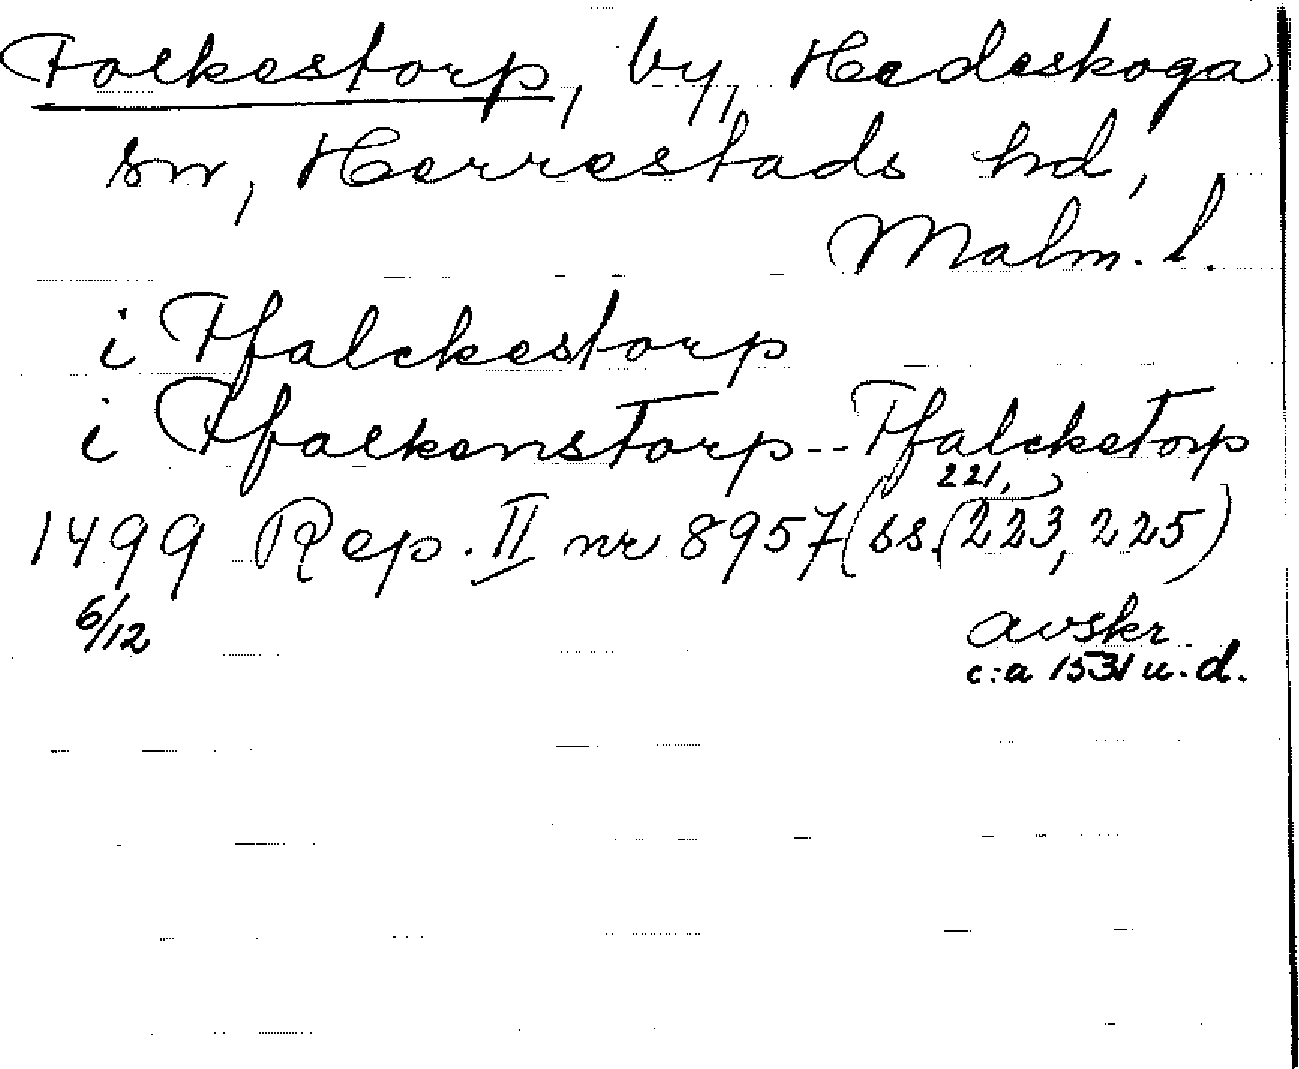 Folkestorp, by, Hedeskoga
sn, Herrestads hd,
Malm. l.
i Ffalckestorp
i Ffalkenstorp -- Ffalcketorp
1499 Rep. II nr 8957 (ss. (221, 223, 225)
6/12 avskr.
c:a 1531 u.d.